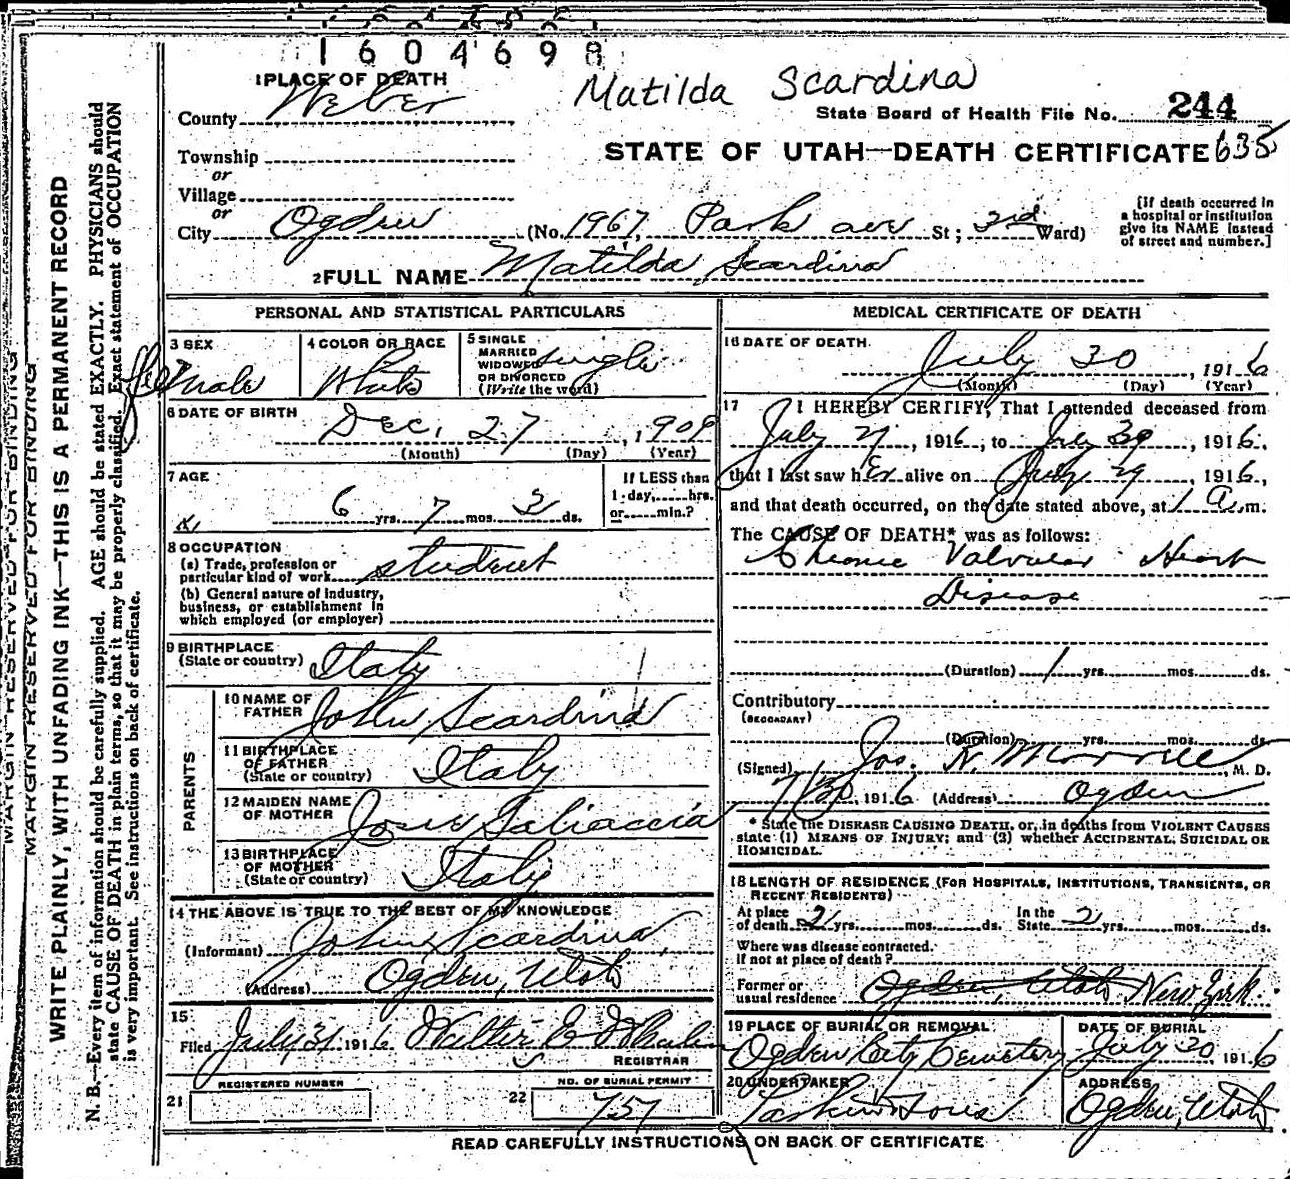 1604698
1 PLACE OF DEATH
Matilda Scardina
County Weber
State Board of Health File No. 244
Township
STATE OF UTAH—DEATH CERTIFICATE 635
or
Village
or
City Ogden (No. 1967, Park ave St; 3rd Ward)
[If death occurred in
a hospital or institution
give its NAME instead
of street and number.]
2 FULL NAME Matilda Scardina
PERSONAL AND STATISTICAL PARTICULARS
3 SEX
Female
4 COLOR OR RACE
White
5 SINGLE
MARRIED
WIDOWED
OR DIVORCED
(Write the word)
single
6 DATE OF BIRTH
Dec. 27, 1909
(Month) (Day) (Year)
7 AGE
6 yrs. 7 mos. 3 ds.
If LESS than
1 day,......hrs.
or......min.?
8 OCCUPATION
(a) Trade, profession or
particular kind of work student
(b) General nature of industry,
business, or establishment in
which employed (or employer)
9 BIRTHPLACE
(State or country) Italy
PARENTS
10 NAME OF
FATHER John Scardina
11 BIRTHPLACE
OF FATHER
(State or country) Italy
12 MAIDEN NAME
OF MOTHER Josie
13 BIRTHPLACE
OF MOTHER
(State or country) Italy
14 THE ABOVE IS TRUE TO THE BEST OF MY KNOWLEDGE
(Informant) John Scardina
(Address) Ogden, Utah
15
Filed July 31, 1916 Walter E Whalen
REGISTRAR
REGISTERED NUMBER
21
NO. OF BURIAL PERMIT
22 757
MEDICAL CERTIFICATE OF DEATH
16 DATE OF DEATH
July 30, 1916
(Month) (Day) (Year)
17 I HEREBY CERTIFY, That I attended deceased from
July 21, 1916, to July 30, 1916,
that I last saw her alive on July 29, 1916,
and that death occurred, on the date stated above, at 1 a.m.
The CAUSE OF DEATH* was as follows:
Chronic Valvular Heart
Disease
(Duration) 1 yrs. mos. ds.
Contributory
(SECONDARY)
(Duration) yrs. mos. ds.
(Signed) Jos. R. Morrell, M. D.
7/30, 1916 (Address) Ogden
* State the DISEASE CAUSING DEATH, or, in deaths from VIOLENT CAUSES
state (1) MEANS OF INJURY; and (2) whether ACCIDENTAL, SUICIDAL OR
HOMICIDAL.
18 LENGTH OF RESIDENCE (FOR HOSPITALS, INSTITUTIONS, TRANSIENTS, OR
RECENT RESIDENTS)
At place
of death 2 yrs. mos. ds.
In the
State 2 yrs. mos. ds.
Where was disease contracted.
If not at place of death?
Former or
usual residence Ogden, Utah New York.
19 PLACE OF BURIAL OR REMOVAL
Ogden City Cemetery
DATE OF BURIAL
July 30, 1916
20 UNDERTAKER
Larkin & Sons
ADDRESS
Ogden, Utah
READ CAREFULLY INSTRUCTIONS ON BACK OF CERTIFICATE
MARGIN RESERVED FOR BINDING
MARGIN RESERVED FOR BINDING
WRITE PLAINLY, WITH UNFADING INK—THIS IS A PERMANENT RECORD
N. B.—Every item of information should be carefully supplied. AGE should be stated EXACTLY. PHYSICIANS should
state CAUSE OF DEATH in plain terms, so that it may be properly classified. Exact statement of OCCUPATION
is very important. See instructions on back of certificate.